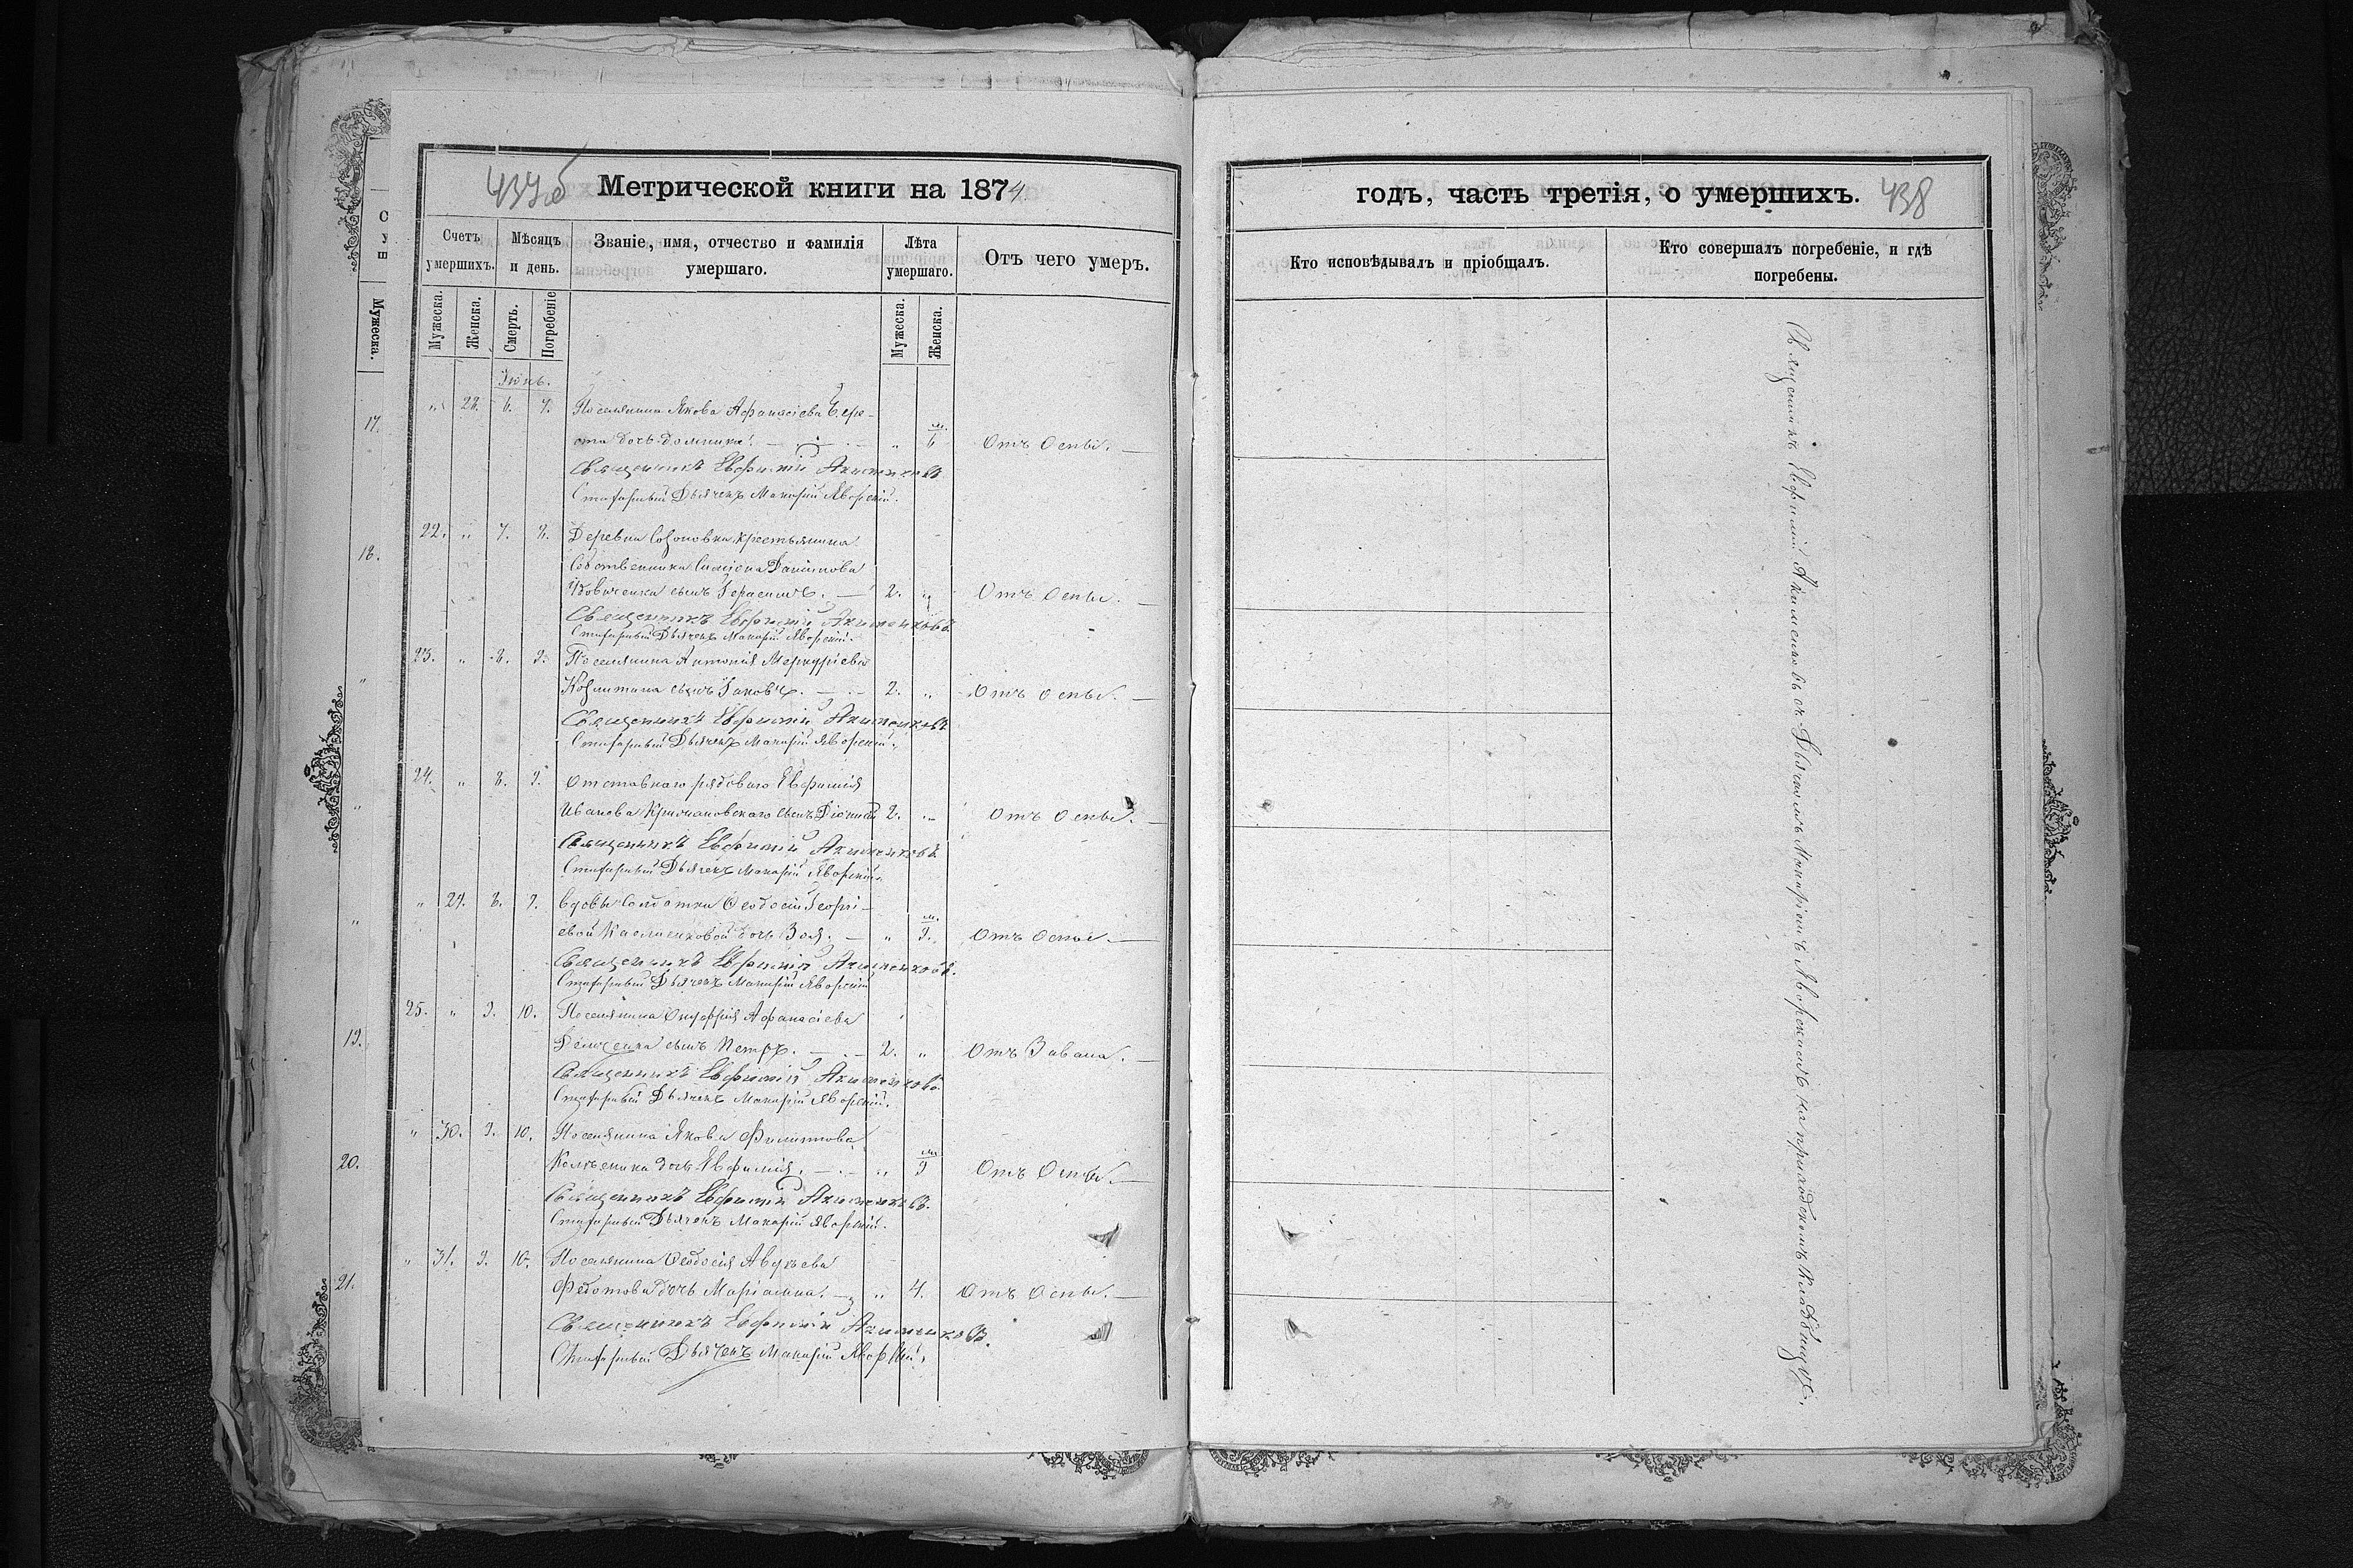 437об
Метрической книги на 1874
Счетъ умершихъ.
Мѣсяцъ и день.
Званіе, имя, отчество и фамилія умершаго.
Лѣта умершаго.
Отъ чего умеръ.
Мужеска.
Женска.
Смерть.
Погребеніе
Мужеска.
Женска.
Мужеска.
17.
18.
19.
20.
21.
Іюнь.
" 28. 6. 7. Поселянина Якова Афанасіева Бере-
ста дочь Домника. " м. 6 Отъ Оспы.
Священникъ Евфимій Акименковъ
Стихарный Дьячекъ Макарій Яворскій.
22. " 7. 8. Деревни Созоновки крестьянина
Собственника Симеона Данилова
сынъ Герасимъ. 2. " Отъ Оспы.
Священникъ Евфимій Акименковъ.
Стихарный Дьячекъ Макарій Яворскій.
23. " 8. 9. Поселянина Антонія Меркуріева
сынъ Іаковъ. 2. " Отъ Оспы.
Священникъ Евфимій Акименковъ
Стихарный Дьячекъ Макарій Яворскій.
24. " 8. 9. Отставнаго рядоваго Евфимія
Иванова сынъ Діонисій 2. " Отъ Оспы.
Священникъ Евфимій Акименковъ.
Стихарный Дьячекъ Макарій Яворскій.
" 29. 8. 9. Вдовы Солдатки Феодосіи Георгі-
евой дочь Зоя. " м. 9. Отъ Оспы.
Священникъ Евфимій Акименковъ.
Стихарный Дьячекъ Макарій Яворскій
25. " 9. 10. Поселянина Онуфрія Афанасіева
сынъ Петръ. 2. " Отъ
Священникъ Евфимій Акименковъ
Стихарный Дьячекъ Макарій Яворскій.
" 30. 9. 10. Поселянина Якова Филиппова
дочь Евфимія. " м. 9 Отъ Оспы.
Священникъ Евфимій Акименковъ.
Стихарный Дьячекъ Макарій Яворскій.
" 31. 9. 10. Поселянина Феодосія Авдѣева
Федотова дочь Маріамна. " 4. Отъ Оспы.
Священникъ Евфимій Акименковъ.
Стихарный Дьячекъ Макарій Яворскій.
годъ, часть третія, о умершихъ. 438
Кто исповѣдывалъ и пріобщалъ.
Кто совершалъ погребеніе, и гдѣ
погребены.
Священникъ Евфимій Акименковъ съ Дьячкомъ Макаріемъ Яворскимъ на приходскомъ Кладбищѣ.